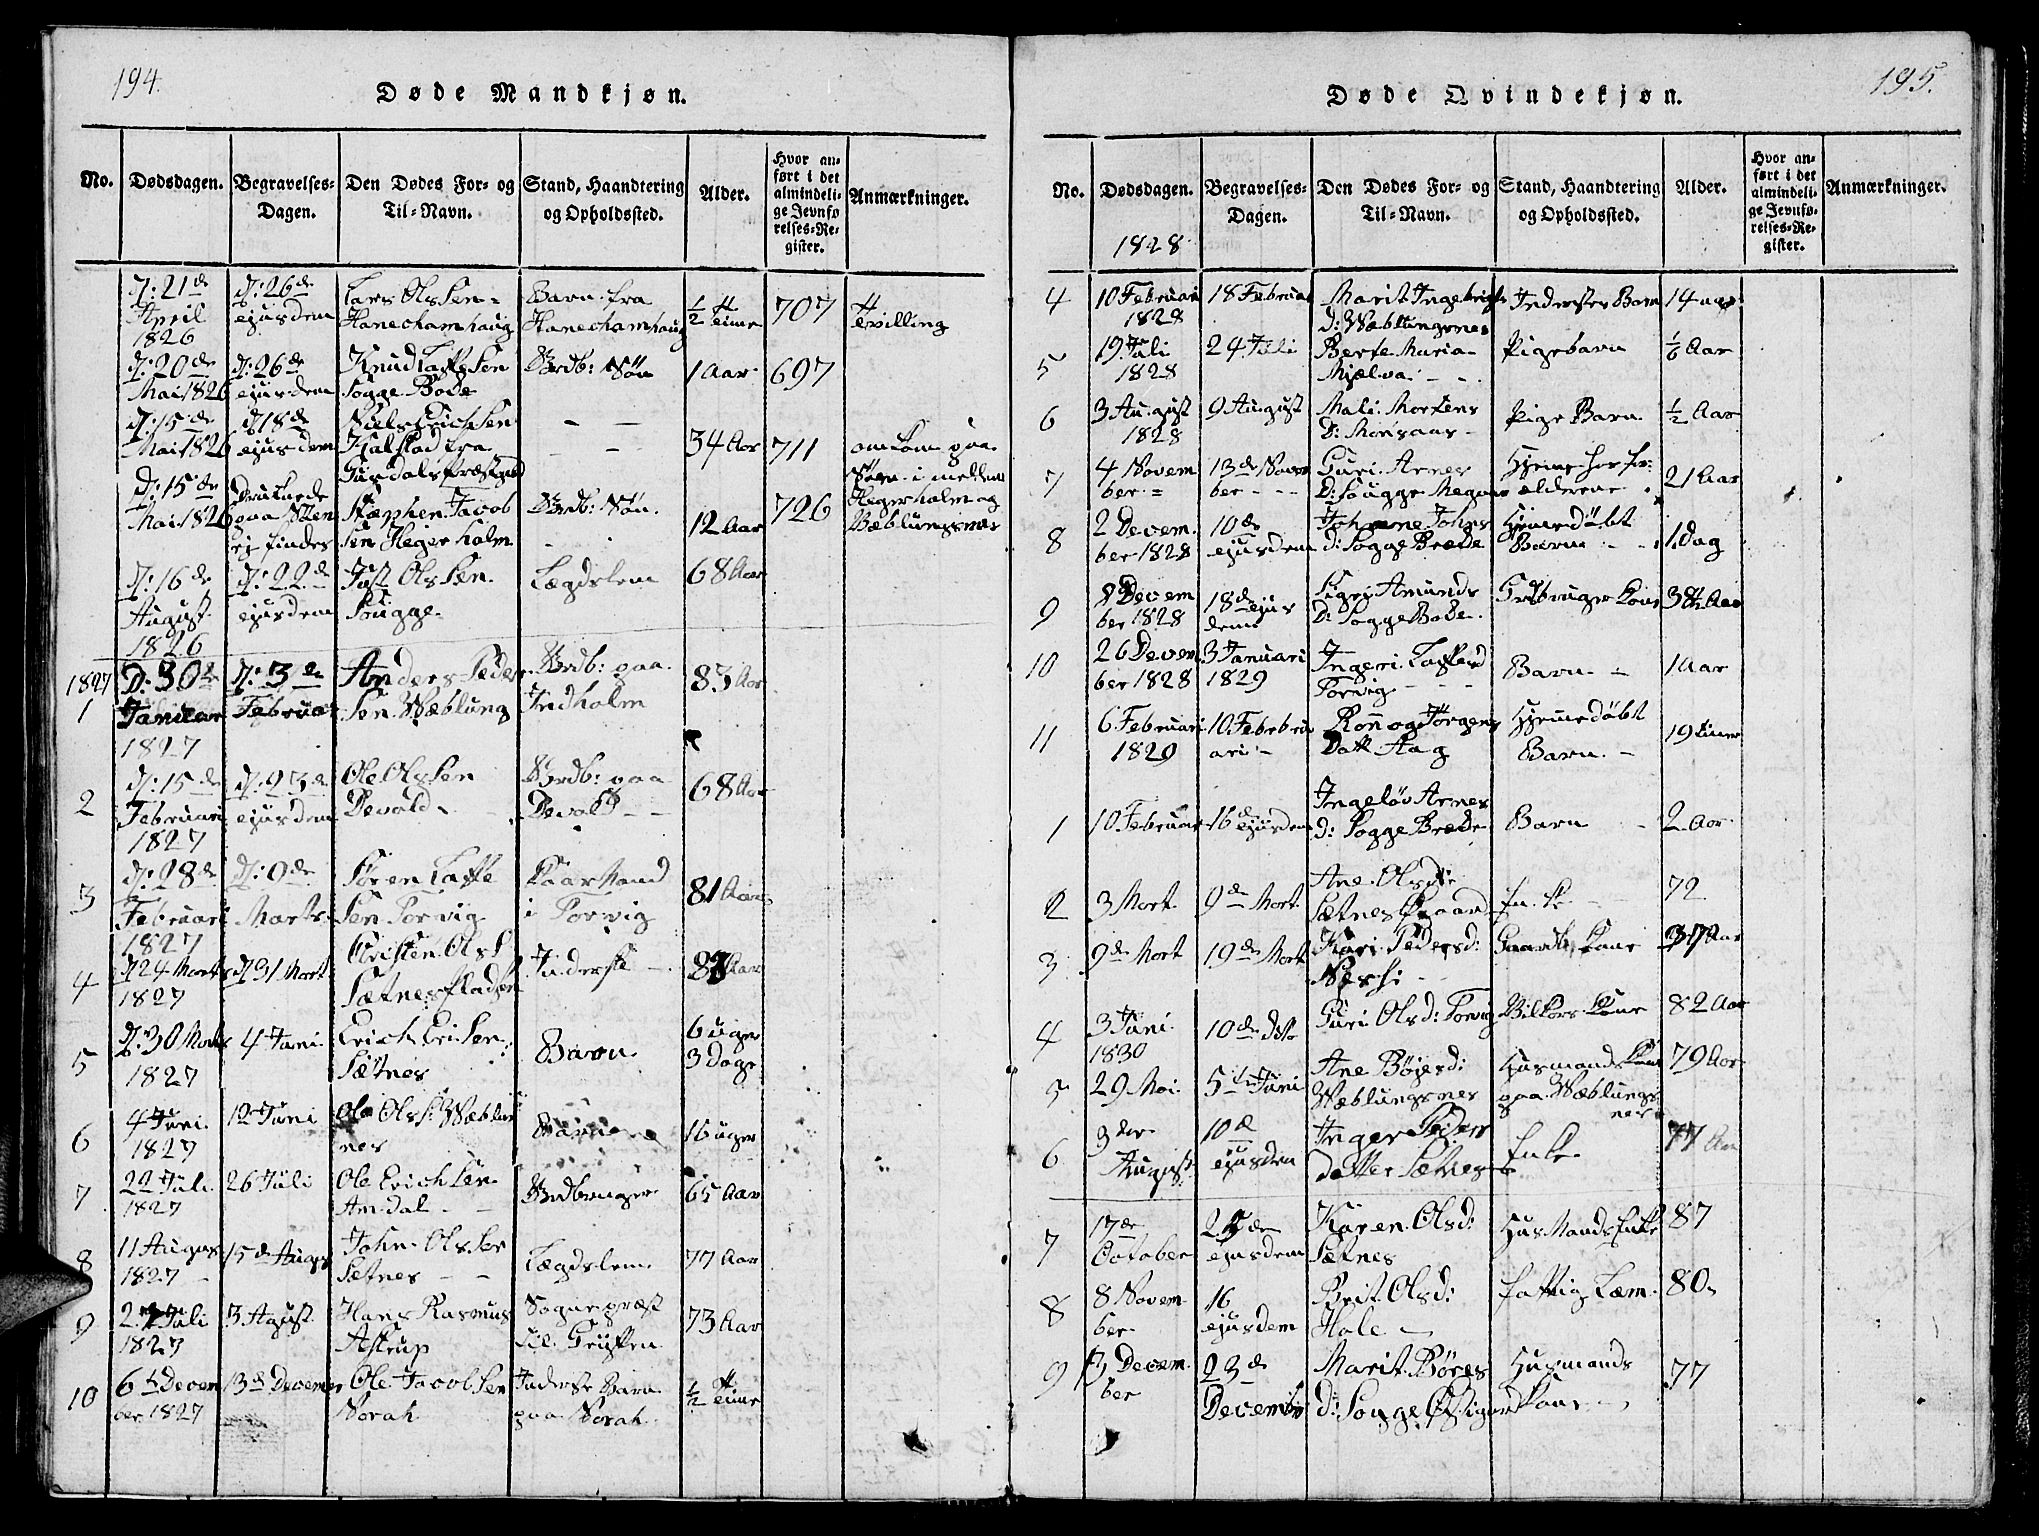 194.
Døde Mandkjøn.
No.
Dødsdagen.
Begravelses-
Dagen.
Den Dødes For- og
Til-Navn.
Stand, Haandtering
og Opholdssted.
Alder.
Hvor an-
ført i det
almindeli-
ge Jevnfø
relses-Re-
gister.
Anmærkninger.
D: 21de
April
1826
D: 26de
ejusdem
Lars Olssen
Hanechamhaug
Barn fra
Hanechamhaug
½ Time
707
tvilling
D: 20de
Mai 1826
D: 26de
ejusdem
Knud
Sogge Bøde
Grdb: Søn
1 Aar
697
D: 15de
Mai 1826
D 18de
ejusdem
Niels Erichsen
fra
34 Aar
711
omkom paa
Søen i mellem
Hegerholm og
Væblungsnæs
D: 15de
Mai 1826
Druknede
paa Søen
ej findes
Stephen Jacob
sen Hegerholm
Grdb: Søn
12 Aar
726
D: 16de
August
1826
D: 22de
ejusdem
Ols sen
Sougge
Lægdslem
68 Aar
1827
1
D: 30te
Januar
1827
D: 3de
Februar
Anders Peder
sen Wæblung
Grdb: paa
Indholm
83 Aar
2
D: 15de
Februari
1827
D: 23de
ejusdem
Ole Olssen
Devold
Grdb: paa
Devold
68 Aar
3
D: 28de
Februari
1827
Marts
Søren
sen Torvig
Kaarmand
i Torvig
81 Aar
4
D 24 Marts
1827
D 31 Mart
Cristen Ols S
Sætnes
Inderste
Aar
5
D: 30 Marts
1827
4 Juni
Erich
Sætnes
Barn
6 uger
3 Dage
6
4 Juni
1827
12 Juni
Ole Ols S: Wæblungs
nes
Barn
16 uger
7
22 Juli
1827
26 Juli
Ole Erichsen
Amdal
Grdbruger
65 Aar
8
11 August
1827
15de August
John Olssen
Sætnes
Lægdslem
77 Aar
9
Juli
1827
3 Agust
Hans Rasmus
Astrup
Sognepræst
til Grytten
73 Aar
10
6te Decem
ber 1827
13de Decemer
Ole Jacobsen
Norah
Inderste Barn
paa Norah
½ Time
195.
Døde Qvindekjøn.
No.
Dødsdagen.
1828
Begravelses-
Dagen.
Den Dødes For- og
Til-Navn.
Stand, Haandtering
og Opholdssted.
Alder.
Hvor an-
ført i det
almindeli-
ge Jevnfø-
relses-Re-
gister.
Anmærkninger.
4
10 Februari
1828
18 Februar
Marit Ingebrigts
d: Wæblungsnes
Inderstes Barn
14
5
19 Juli
1828
24 Juli
Berte Maria
Mjælva
Pigebarn
Aar
6
3 August
1828
9 August
Mali Mortens
D:
Pige Barn
½ Aar
7
4 Novem
ber
13de Novem
ber
Guri Arnes
D: Sougge
Hjeme hos for-
ældrene
21 Aar
8
2 Decem
ber 1828
10de
ejusdem
Johanne Johns
d: Sogge Bræde
Hjemedøbt
Barn
1 Dag
9
Decem
ber 1828
18de ejus
dem
Sigri Amunds
D: Sogge Bøde
Grdbruger Kone
Aar
10
26 Decem
ber 1828
3 Januari
1829
Ingeri
Torvig
Barn
1 Aar
11
6 Februari
1829
10 Febebru
ari
Ronnog Jørgens
Datt Aag
Hjemedøbt
Barn
19 timer
1
10 Februar
16de ejusdem
Ingeløv Arnes
d: Sogge Bræde
Barn
2 Aar
2
3 Mart
9de Mart
Ane Olsdtr
Enke
72
3
9de Mart
19de Mart
Kari Pedersd:
Gaardb. Kone
37 Aar
4
3 Juni
1830
10de dito
Guri Olsd: Torvig
Vilkors Kone
82 Aar
5
29 Mai
5te Juni
Ane Bøjesd:
Wæblungsnes
Husmands Kone
paa Wæblungs
nes
79 Aar
6
3de
August
10de
ejusdem
Inger Peders
datter Sætnes
Enke
77 Aar
7
17de
October
ejusdem
Karen Olsd:
Sætnes
HusMands Enke
87
8
8 Novem
ber
16
ejusdem
Brit Olsd:
Hole
fattig Lem
80
9
Decem
ber
23de
December
Marit Børes
d: Souge
Husmands
Kone
77